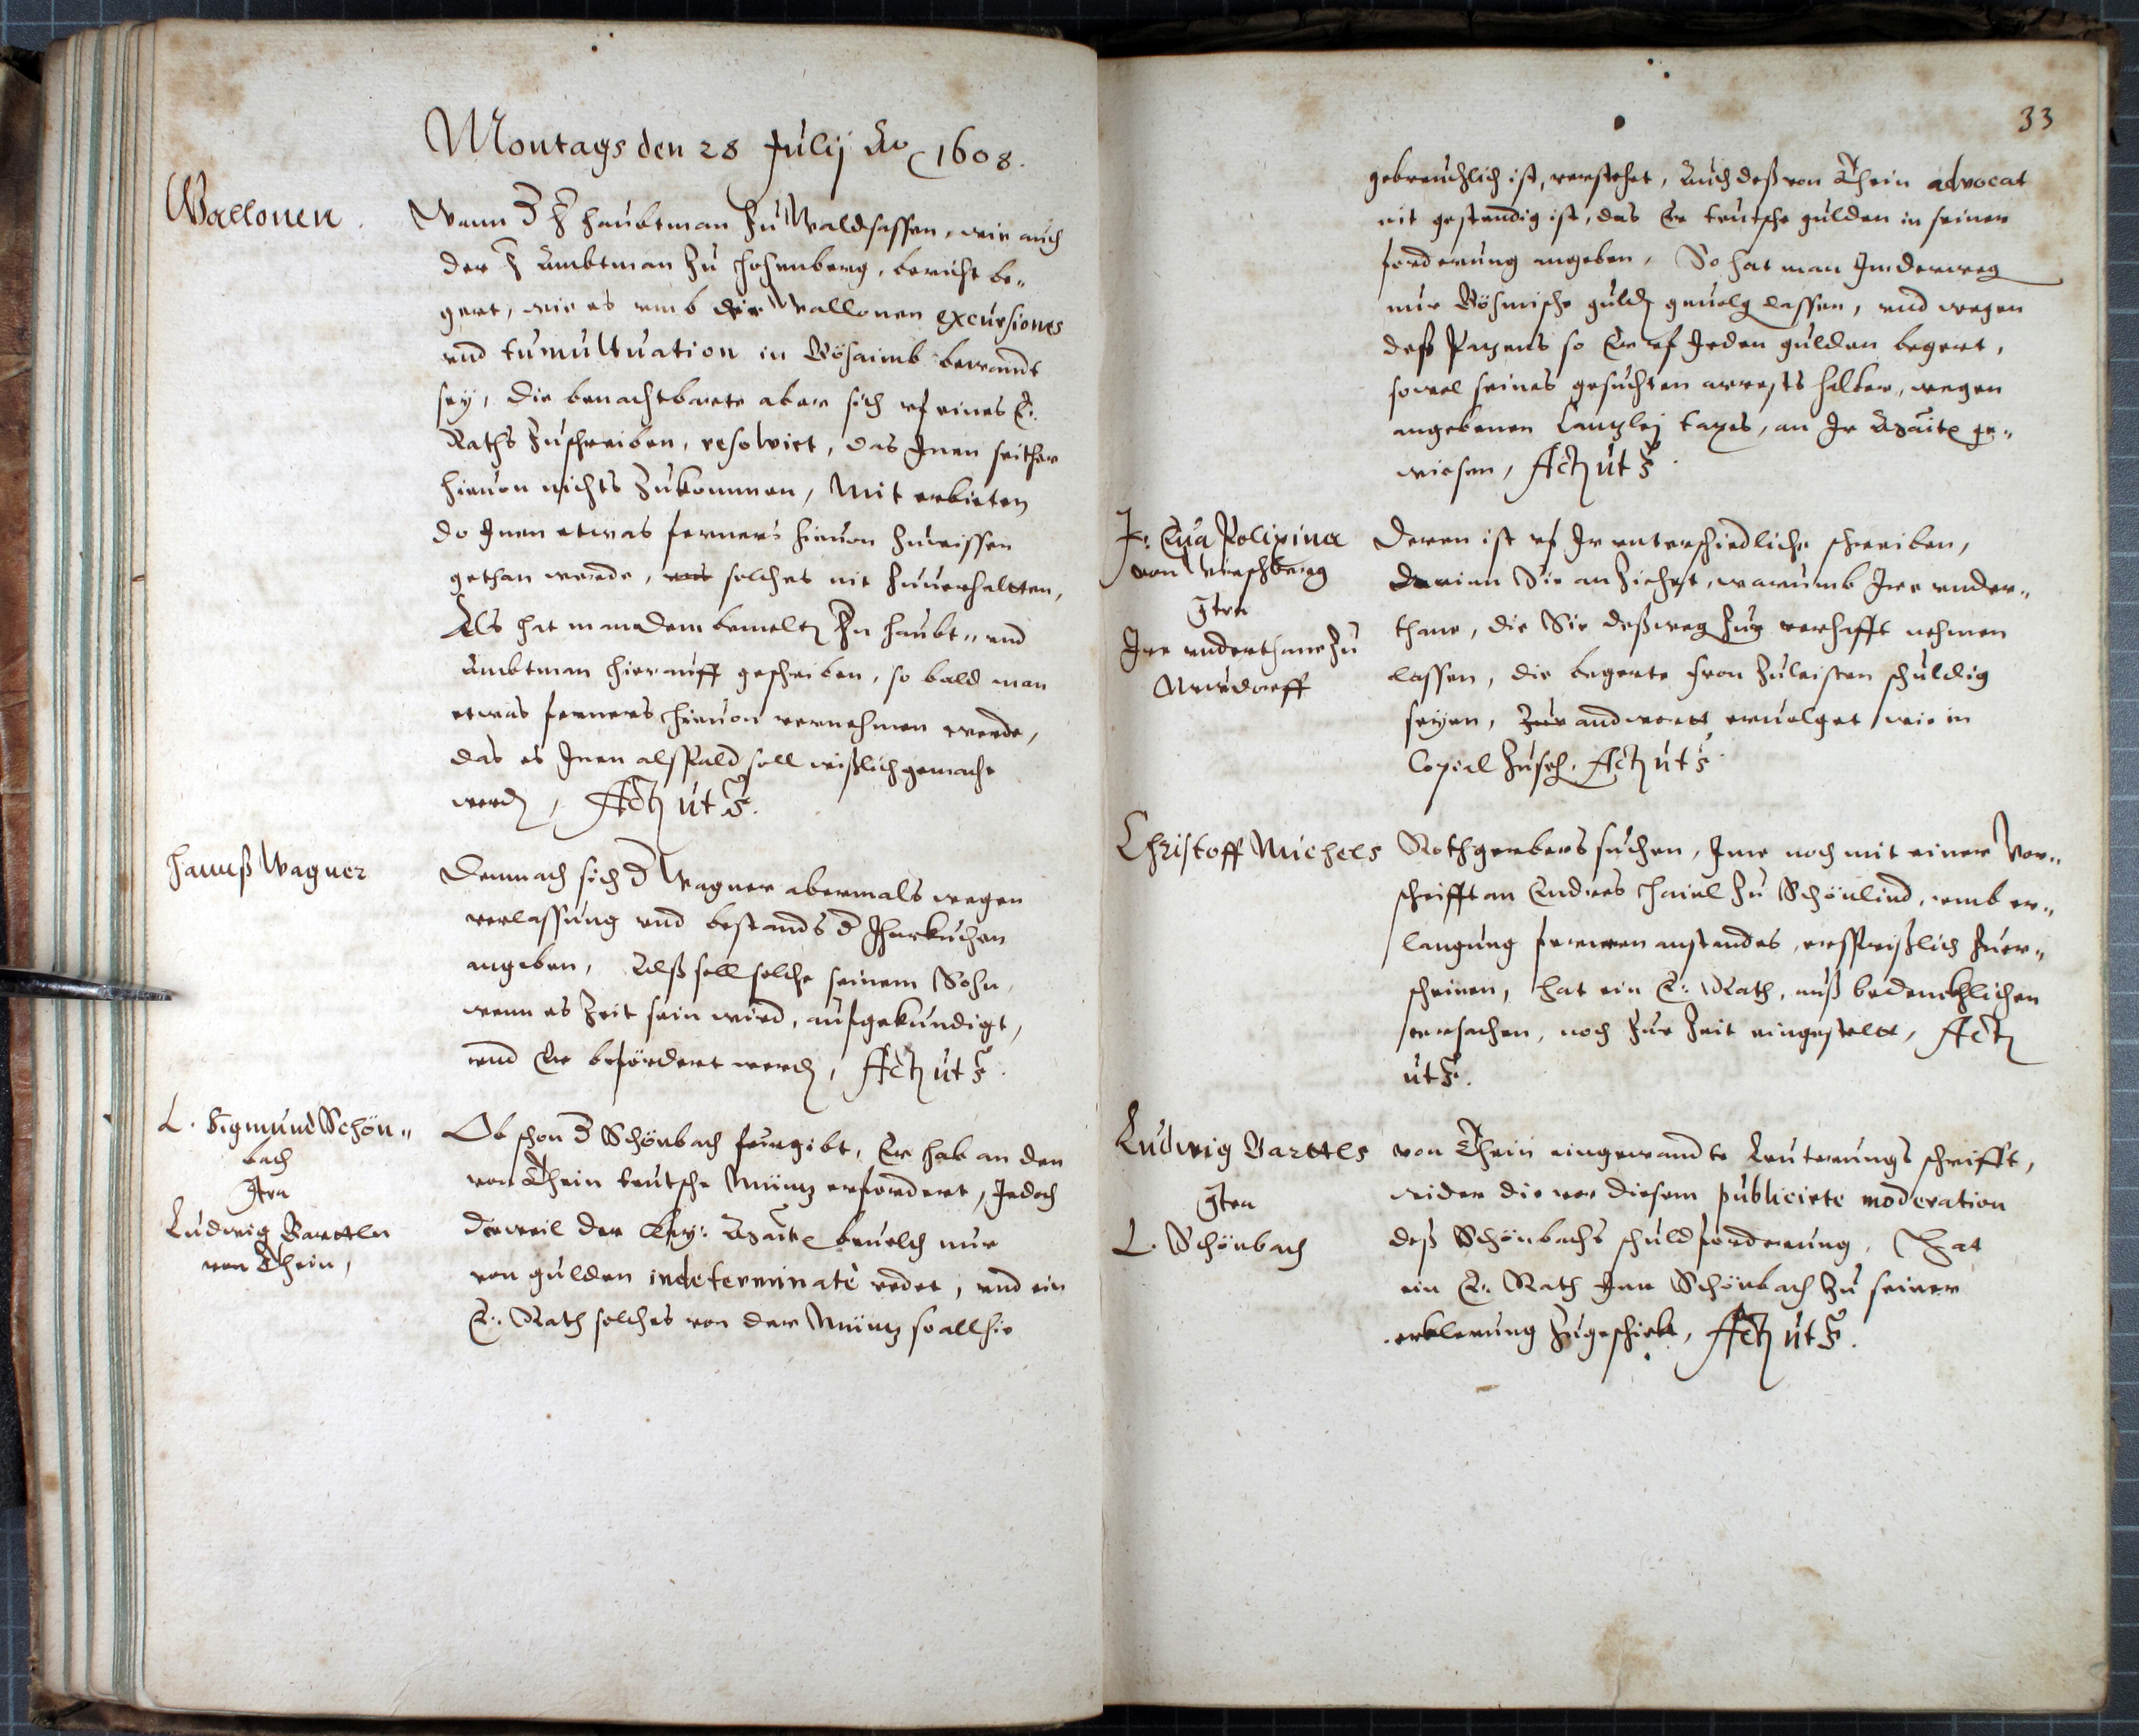 Montags den 28 Julij Ao 1608.
Wallonen.
Wann d H Haubtman zu Waldsassen, wie auch
der H Ambtman zu Hohenberg, bericht be„
gert, wie es umb die Wallonen excursiones
und tumultuation in Böhaimb bewandt
sey, die benachtbarte aber sich uf eines E.
Raths zuschreiben, resolvirt, das Inen seither
hieuon nichts zukommen, Mit erbieten
do Inen etwas ferners hieuon zuwissen
gethan werde, solches nit zuuerhaltten,
Als hat man dem bemelten Hn Haubt„ und
Ambtman hierauff geschrieben, so bald man
etwas ferners hieuon vernehmen werde,
das es Inen alßbald soll wißlich gemacht
werdn, Actum ut s.
Hannß Wagner
Demnach sich d Wagner abermals wegen
verlassung und bestands d Gharkuchen
angeben, Alß soll solche seinem Sohn,
wenn es Zeit sein wird, aufgekündigt,
und Er befördert werdn, Actum ut s.
L. Sigmund Schön„
bach
Ctra
Ludwig Barttln
von Thein,
Ob schon d Schönbach furgibt, Er hab an den
von Thein teutsche Müntz erfordert, Jedoch
dieweil der Key: Maitt beuelch nur
von gulden indeterminatè redet, und ein
E. Rath solches von der Müntz so allhie
33
gebreuchlich ist, verstehet, Auch deß von Thein advocat
nit gestendig ist, das Er teutsche gulden in seiner
forderung angeben, So hat man Inderweg
nur Böhmische guldn geuolg lassen, und wegen
deß so Er uf Jeden gulden begert,
sowol seines gesuchten arrests halber, wegen
angebenen Cantzlej taxes, an Ir Maitt ge„
wiesen, Actum ut s.
F: Eua Polixina
von Wirschberg
Ctra
Ire underthane zu
Deren ist uf Ir unterschiedliche schreiben,
darinn Sie anzieht, warumb Ire under„
thane, die Sie deßweg verhafft nehmen
lassen, die begerte fron zuleisten schuldig
seyen, andwortt eruolget wie in
Copial zuseh. Actum ut s.
Christoff Michels
Rothgerbers suchen, Ime noch mit einer Vor„
schrifft an Endres Haiel zu Schönlind, umb er„
langung ferrern anstandes, ersprießlich zuer„
scheinen, hat ein E. Rath, auß bedencklichen
ursachen, noch zur Zeit eingestelt, Actum
ut s.
Ludwig Barttls
Ctra
L. Schönbach
von Thein eingewandte Leuterungs schrifft,
wider die vor diesem publicirte moderation
deß Schönbachs schuldforderung, Hat
ein E. Rath Ime Schönbach zu seiner
erklerung zugeschickt, Actum ut s.